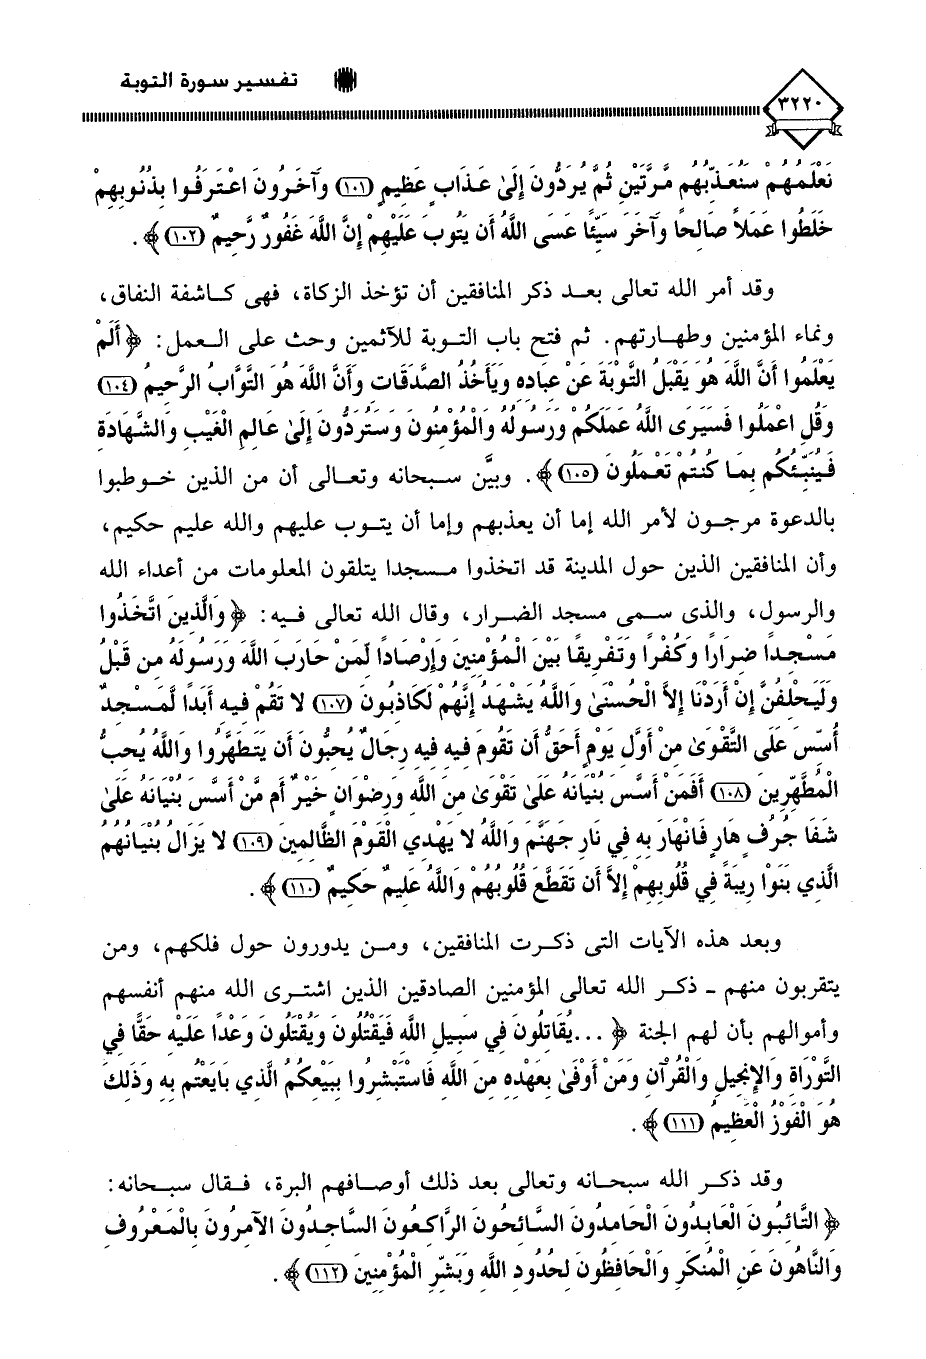 ٣٢٢٠
تفسير سورة التوبة
نَعْلَمُهُمْ سَنُعَذِّبُهُم مَّرَّتَيْنِ ثُمَّ يُرَدُّونَ إِلَىٰ عَذَابٍ عَظِيمٍ (١٠١) وَآخَرُونَ اعْتَرَفُوا بِذُنُوبِهِمْ
خَلَطُوا عَمَلاً صَالِحًا وَآخَرَ سَيِّئًا عَسَى اللَّهُ أَن يَتُوبَ عَلَيْهِمْ إِنَّ اللَّهَ غَفُورٌ رَّحِيمٌ (١٠٢) ﴾ .
وقد أمر الله تعالى بعد ذكر المنافقين أن تؤخذ الزكاة، فهى كاشفة النفاق،
ونماء المؤمنين وطهارتهم. ثم فتح باب التوبة للآثمين وحث على العمل: ﴿ أَلَمْ
يَعْلَمُوا أَنَّ اللَّهَ هُوَ يَقْبَلُ التَّوْبَةَ عَنْ عِبَادِهِ وَيَأْخُذُ الصَّدَقَاتِ وَأَنَّ اللَّهَ هُوَ التَّوَّابُ الرَّحِيمُ (١٠٤)
وَقُلِ اعْمَلُوا فَسَيَرَى اللَّهُ عَمَلَكُمْ وَرَسُولُهُ وَالْمُؤْمِنُونَ وَسَتُرَدُّونَ إِلَىٰ عَالِمِ الْغَيْبِ وَالشَّهَادَةِ
فَيُنَبِّئُكُم بِمَا كُنتُمْ تَعْمَلُونَ (١٠٥) ﴾. وبيَّن سبحانه وتعالى أن من الذين خوطبوا
بالدعوة مرجون لأمر الله إما أن يعذبهم وإما أن يتوب عليهم والله عليم حكيم،
وأن المنافقين الذين حول المدينة قد اتخذوا مسجدا يتلقون المعلومات من أعداء الله
والرسول، والذى سمى مسجد الضرار، وقال الله تعالى فيه: ﴿ وَالَّذِينَ اتَّخَذُوا
مَسْجِدًا ضِرَارًا وَكُفْرًا وَتَفْرِيقًا بَيْنَ الْمُؤْمِنِينَ وَإِرْصَادًا لِّمَنْ حَارَبَ اللَّهَ وَرَسُولَهُ مِن قَبْلُ
وَلَيَحْلِفُنَّ إِنْ أَرَدْنَا إِلاَّ الْحُسْنَىٰ وَاللَّهُ يَشْهَدُ إِنَّهُمْ لَكَاذِبُونَ (١٠٧) لا تَقُمْ فِيهِ أَبَدًا لَّمَسْجِدٌ
أُسِّسَ عَلَى التَّقْوَىٰ مِنْ أَوَّلِ يَوْمٍ أَحَقُّ أَن تَقُومَ فِيهِ فِيهِ رِجَالٌ يُحِبُّونَ أَن يَتَطَهَّرُوا وَاللَّهُ يُحِبُّ
الْمُطَّهِّرِينَ (١٠٨) أَفَمَنْ أَسَّسَ بُنْيَانَهُ عَلَىٰ تَقْوَىٰ مِنَ اللَّهِ وَرِضْوَانٍ خَيْرٌ أَم مَّنْ أَسَّسَ بُنْيَانَهُ عَلَىٰ
شَفَا جُرُفٍ هَارٍ فَانْهَارَ بِهِ فِي نَارِ جَهَنَّمَ وَاللَّهُ لا يَهْدِي الْقَوْمَ الظَّالِمِينَ (١٠٩) لا يَزَالُ بُنْيَانُهُمُ
الَّذِي بَنَوْا رِيبَةً فِي قُلُوبِهِمْ إِلاَّ أَن تَقَطَّعَ قُلُوبُهُمْ وَاللَّهُ عَلِيمٌ حَكِيمٌ (١١٠) ﴾ .
وبعد هذه الآيات التى ذكرت المنافقين، ومن يدورون حول فلكهم، ومن
يتقربون منهم - ذكر الله تعالى المؤمنين الصادقين الذين اشترى الله منهم أنفسهم
وأموالهم بأن لهم الجنة ﴿ ...يُقَاتِلُونَ فِي سَبِيلِ اللَّهِ فَيَقْتُلُونَ وَيُقْتَلُونَ وَعْدًا عَلَيْهِ حَقًّا فِي
التَّوْرَاةِ وَالإِنجِيلِ وَالْقُرْآنِ وَمَنْ أَوْفَىٰ بِعَهْدِهِ مِنَ اللَّهِ فَاسْتَبْشِرُوا بِبَيْعِكُمُ الَّذِي بَايَعْتُم بِهِ وَذَلِكَ
هُوَ الْفَوْزُ الْعَظِيمُ (١١١) ﴾ .
وقد ذكر الله سبحانه وتعالى بعد ذلك أوصافهم البرة، فقال سبحانه:
﴿ التَّائِبُونَ الْعَابِدُونَ الْحَامِدُونَ السَّائِحُونَ الرَّاكِعُونَ السَّاجِدُونَ الآمِرُونَ بِالْمَعْرُوفِ
وَالنَّاهُونَ عَنِ الْمُنكَرِ وَالْحَافِظُونَ لِحُدُودِ اللَّهِ وَبَشِّرِ الْمُؤْمِنِينَ (١١٢) ﴾ .